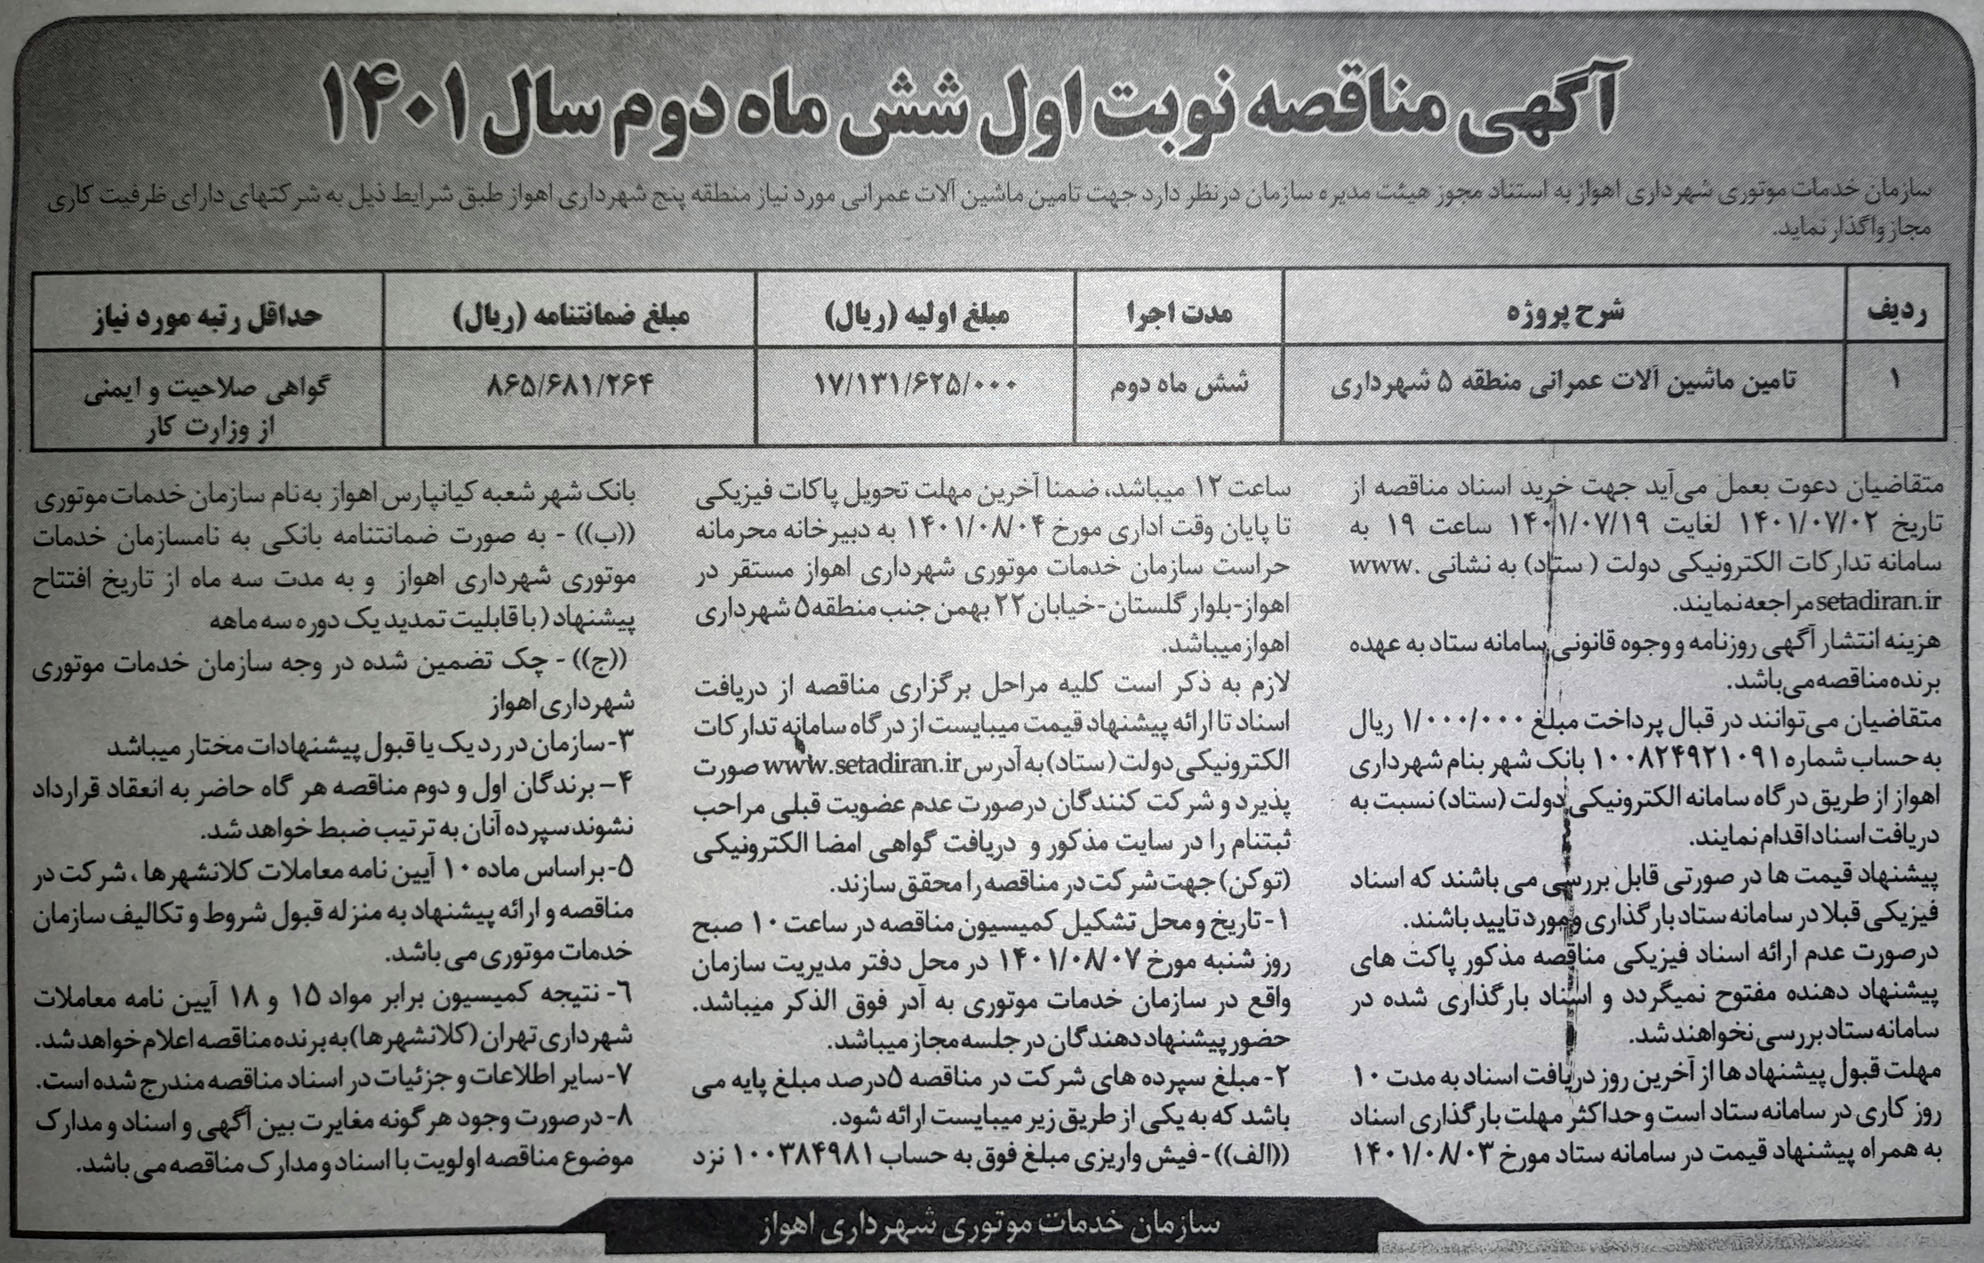 آگهی مناقصه نوبت اول شش ماه دوم سال ۱۴۰۱
سازمان خدمات موتوری شهرداری اهواز به استناد مجوز هیئت مدیره سازمان درنظر دارد جهت تامین ماشین آلات عمرانی مورد نیاز منطقه پنج شهرداری اهواز طبق شرایط ذیل به شرکتهای دارای ظرفیت کاری
مجاز واگذار نماید.
ردیف شرح پروژه مدت اجرا مبلغ اولیه (ریال) مبلغ ضمانتنامه (ریال) حداقل رتبه مورد نیاز
۱ تامین ماشین آلات عمرانی منطقه ۵ شهرداری شش ماه دوم ۱۷/۱۳۱/۶۲۵/۰۰۰ ۸۶۵/۶۸۱/۲۶۴ گواهی صلاحیت و ایمنی
از وزارت کار
متقاضیان دعوت بعمل می‌آید جهت خرید اسناد مناقصه از
تاریخ ۱۴۰۱/۰۷/۰۲ لغایت ۱۴۰۱/۰۷/۱۹ ساعت ۱۹ به
سامانه تدارکات الکترونیکی دولت ( ستاد) به نشانی www.
setadiran.ir مراجعه نمایند.
هزینه انتشار آگهی روزنامه و وجوه قانونی سامانه ستاد به عهده
برنده مناقصه می‌باشد.
متقاضیان می‌توانند در قبال پرداخت مبلغ ۱/۰۰۰/۰۰۰ ریال
به حساب شماره ۱۰۰۸۲۴۹۲۱۰۹۱ بانک شهر بنام شهرداری
اهواز از طریق درگاه سامانه الکترونیکی دولت (ستاد) نسبت به
دریافت اسناد اقدام نمایند.
پیشنهاد قیمت ها در صورتی قابل بررسی می باشند که اسناد
فیزیکی قبلا در سامانه ستاد بارگذاری و مورد تایید باشند.
درصورت عدم ارائه اسناد فیزیکی مناقصه مذکور پاکت های
پیشنهاد دهنده مفتوح نمیگردد و اسناد بارگذاری شده در
سامانه ستاد بررسی نخواهند شد.
مهلت قبول پیشنهاد ها از آخرین روز دریافت اسناد به مدت ۱۰
روز کاری در سامانه ستاد است و حداکثر مهلت بارگذاری اسناد
به همراه پیشنهاد قیمت در سامانه ستاد مورخ ۱۴۰۱/۰۸/۰۳
ساعت ۱۲ میباشد، ضمنا آخرین مهلت تحویل پاکات فیزیکی
تا پایان وقت اداری مورخ ۱۴۰۱/۰۸/۰۴ به دبیرخانه محرمانه
حراست سازمان خدمات موتوری شهرداری اهواز مستقر در
اهواز-بلوار گلستان-خیابان ۲۲ بهمن جنب منطقه ۵ شهرداری
اهواز میباشد.
لازم به ذکر است کلیه مراحل برگزاری مناقصه از دریافت
اسناد تا ارائه پیشنهاد قیمت میبایست از درگاه سامانه تدارکات
الکترونیکی دولت (ستاد) به آدرس www.setadiran.ir صورت
پذیرد و شرکت کنندگان درصورت عدم عضویت قبلی مراحب
ثبتنام را در سایت مذکور و دریافت گواهی امضا الکترونیکی
(توکن) جهت شرکت در مناقصه را محقق سازند.
۱- تاریخ و محل تشکیل کمیسیون مناقصه در ساعت ۱۰ صبح
روز شنبه مورخ ۱۴۰۱/۰۸/۰۷ در محل دفتر مدیریت سازمان
واقع در سازمان خدمات موتوری به آدر فوق الذکر میباشد.
حضور پیشنهاد دهندگان در جلسه مجاز میباشد.
۲- مبلغ سپرده های شرکت در مناقصه ۵درصد مبلغ پایه می
باشد که به یکی از طریق زیر میبایست ارائه شود.
((الف))- فیش واریزی مبلغ فوق به حساب ۱۰۰۳۸۴۹۸۱ نزد
بانک شهر شعبه کیانپارس اهواز به‌نام سازمان خدمات موتوری
((ب)) - به صورت ضمانتنامه بانکی به نامسازمان خدمات
موتوری شهرداری اهواز و به مدت سه ماه از تاریخ افتتاح
پیشنهاد ( با قابلیت تمدید یک دوره سه ماهه
((ج)) - چک تضمین شده در وجه سازمان خدمات موتوری
شهرداری اهواز
۳- سازمان در رد یک یا قبول پیشنهادات مختار میباشد
۴- برندگان اول و دوم مناقصه هر گاه حاضر به انعقاد قرارداد
نشوند سپرده آنان به ترتیب ضبط خواهد شد.
۵- براساس ماده ۱۰ آیین نامه معاملات کلانشهرها ، شرکت در
مناقصه و ارائه پیشنهاد به منزله قبول شروط و تکالیف سازمان
خدمات موتوری می باشد.
۶- نتیجه کمیسیون برابر مواد ۱۵ و ۱۸ آیین نامه معاملات
شهرداری تهران (کلانشهر ها) به برنده مناقصه اعلام خواهد شد.
۷- سایر اطلاعات و جزئیات در اسناد مناقصه مندرج شده است.
۸- درصورت وجود هر گونه مغایرت بین آگهی و اسناد و مدارک
موضوع مناقصه اولویت با اسناد و مدارک مناقصه می باشد.
سازمان خدمات موتوری شهرداری اهواز